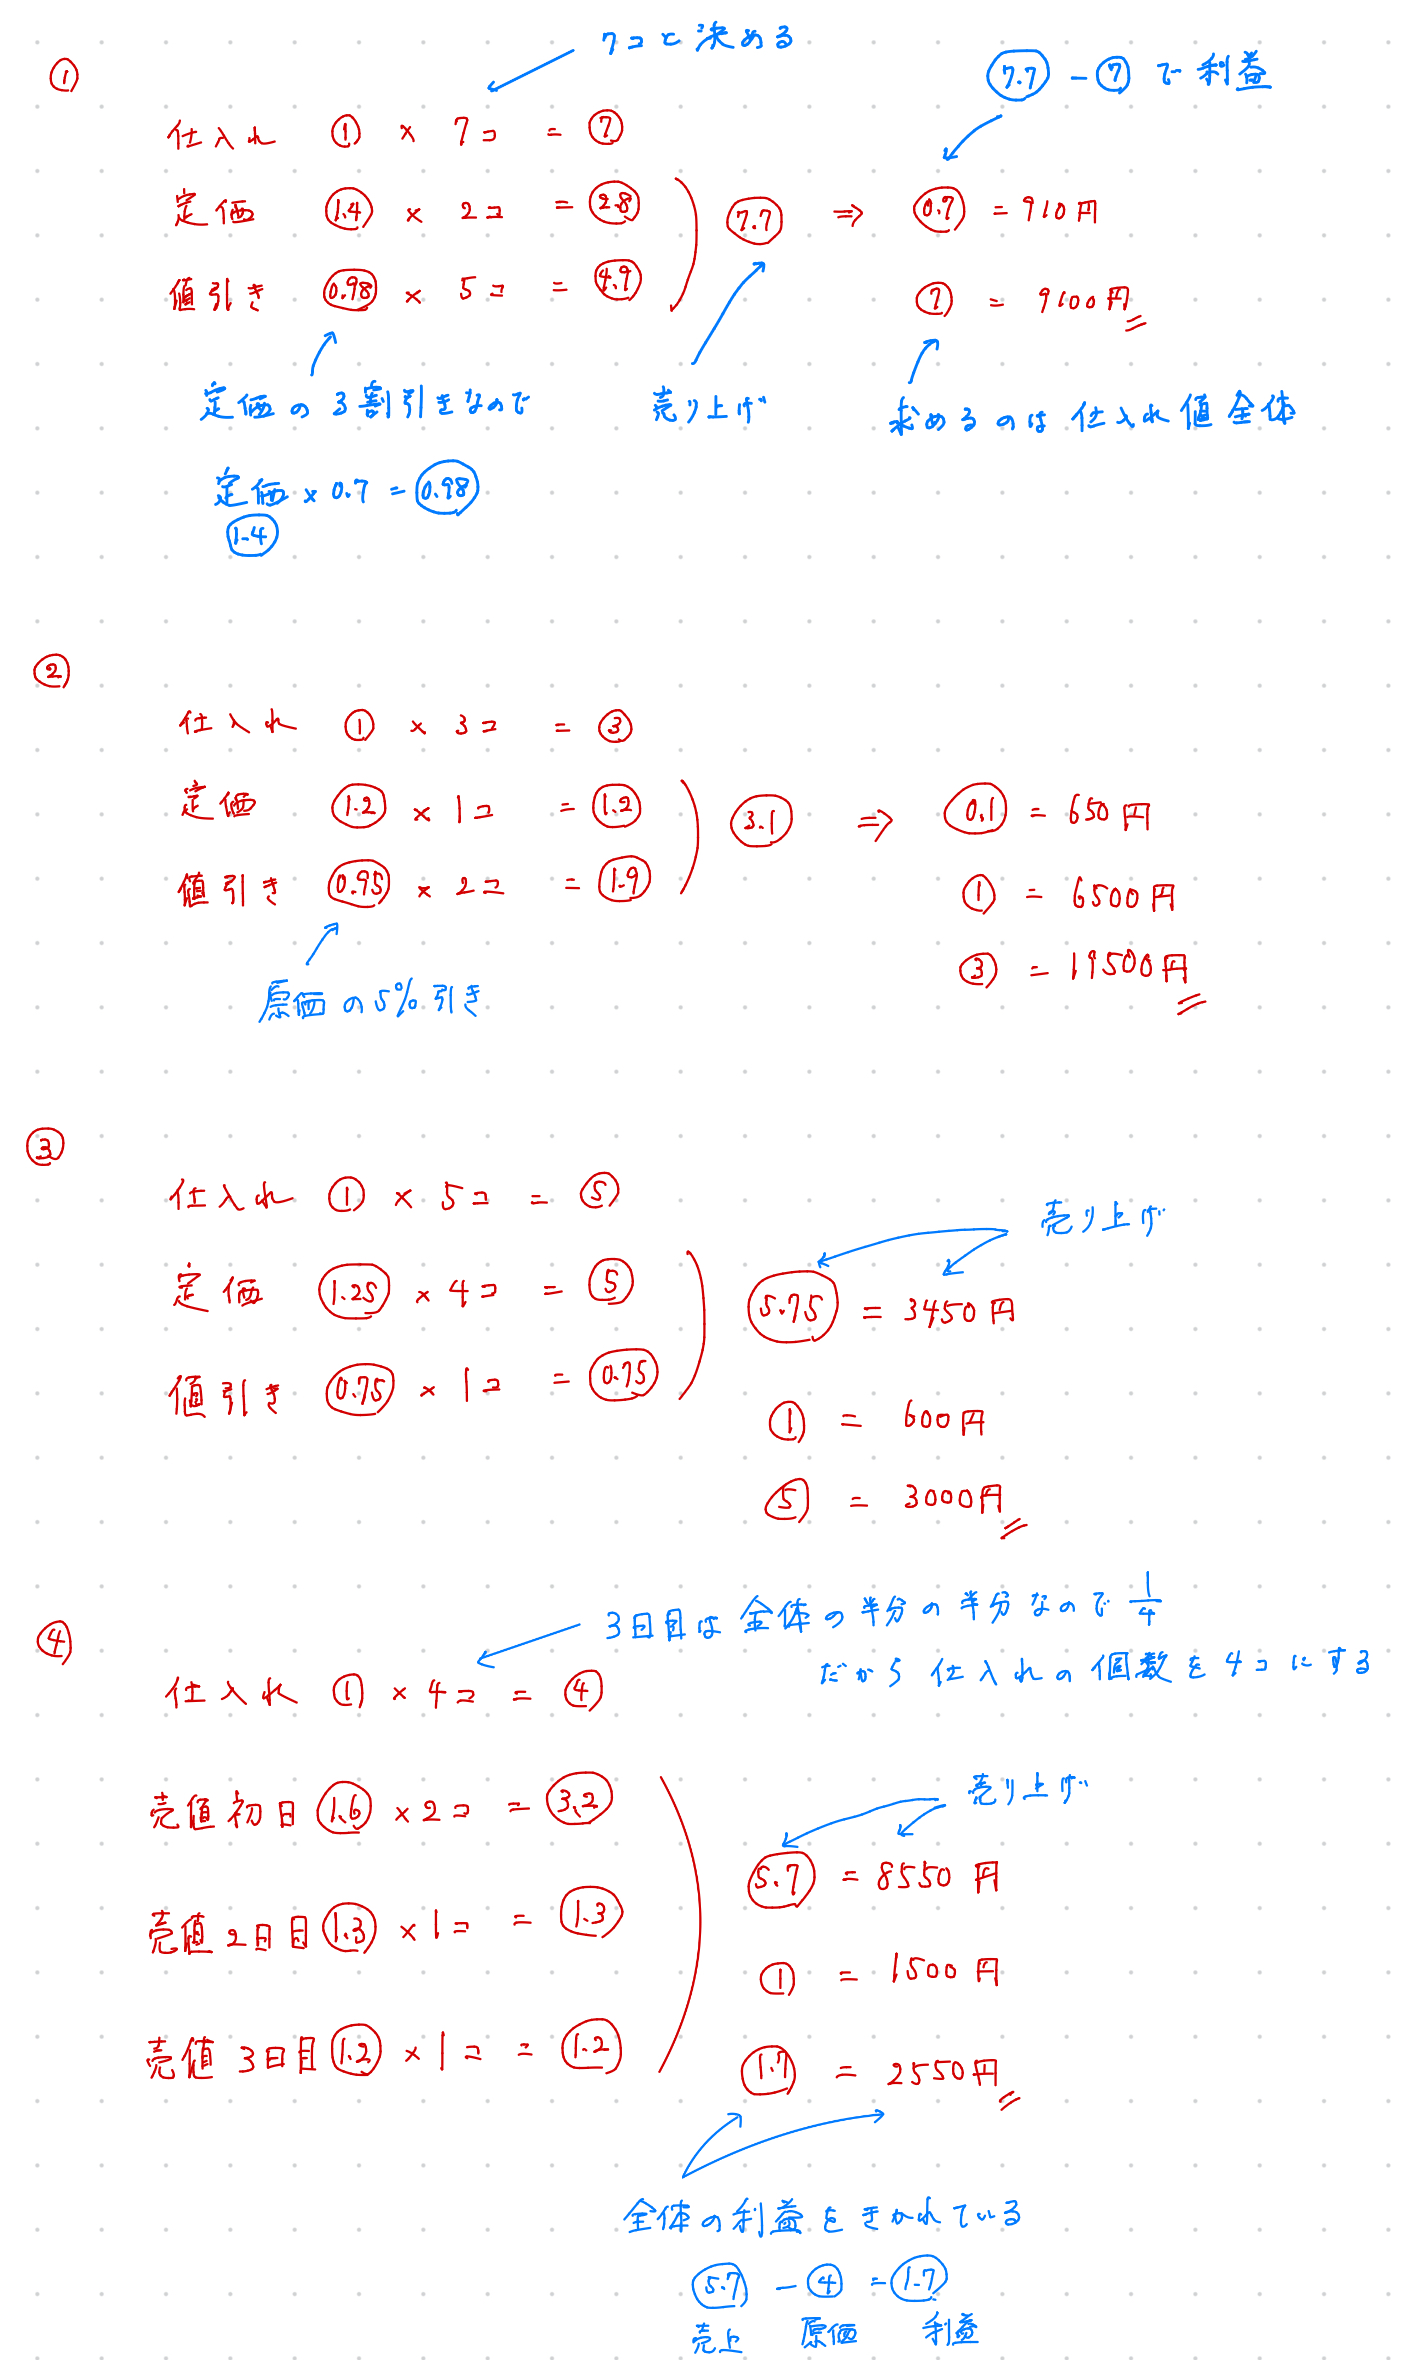 ① 7コと決める
7.7 - ⑦ で利益
仕入れ ① × 7コ = ⑦
定価 1.4 × 2コ = 2.8
7.7 ⇒ 0.7 = 910円
値引き 0.98 × 5コ = 4.9
⑦ = 9100円
定価の3割引きなので
売り上げ
求めるのは仕入れ値全体
定価 × 0.7 = 0.98
1.4
②
仕入れ ① × 3コ = ③
定価 1.2 × 1コ = 1.2
3.1 ⇒ 0.1 = 650円
値引き 0.95 × 2コ = 1.9
① = 6500円
③ = 19500円
原価の5%引き
③
仕入れ ① × 5コ = ⑤
売り上げ
定価 1.25 × 4コ = ⑤
5.75 = 3450円
値引き 0.75 × 1コ = 0.75
① = 600円
⑤ = 3000円
④
3日目は全体の半分の半分なので 1/4
だから仕入れの個数を4コにする
仕入れ ① × 4コ = ④
売り上げ
売値初日 1.6 × 2コ = 3.2
5.7 = 8550円
売値2日目 1.3 × 1コ = 1.3
① = 1500円
売値3日目 1.2 × 1コ = 1.2
1.7 = 2550円
全体の利益をきかれている
5.7 - ④ = 1.7
売上 原価 利益